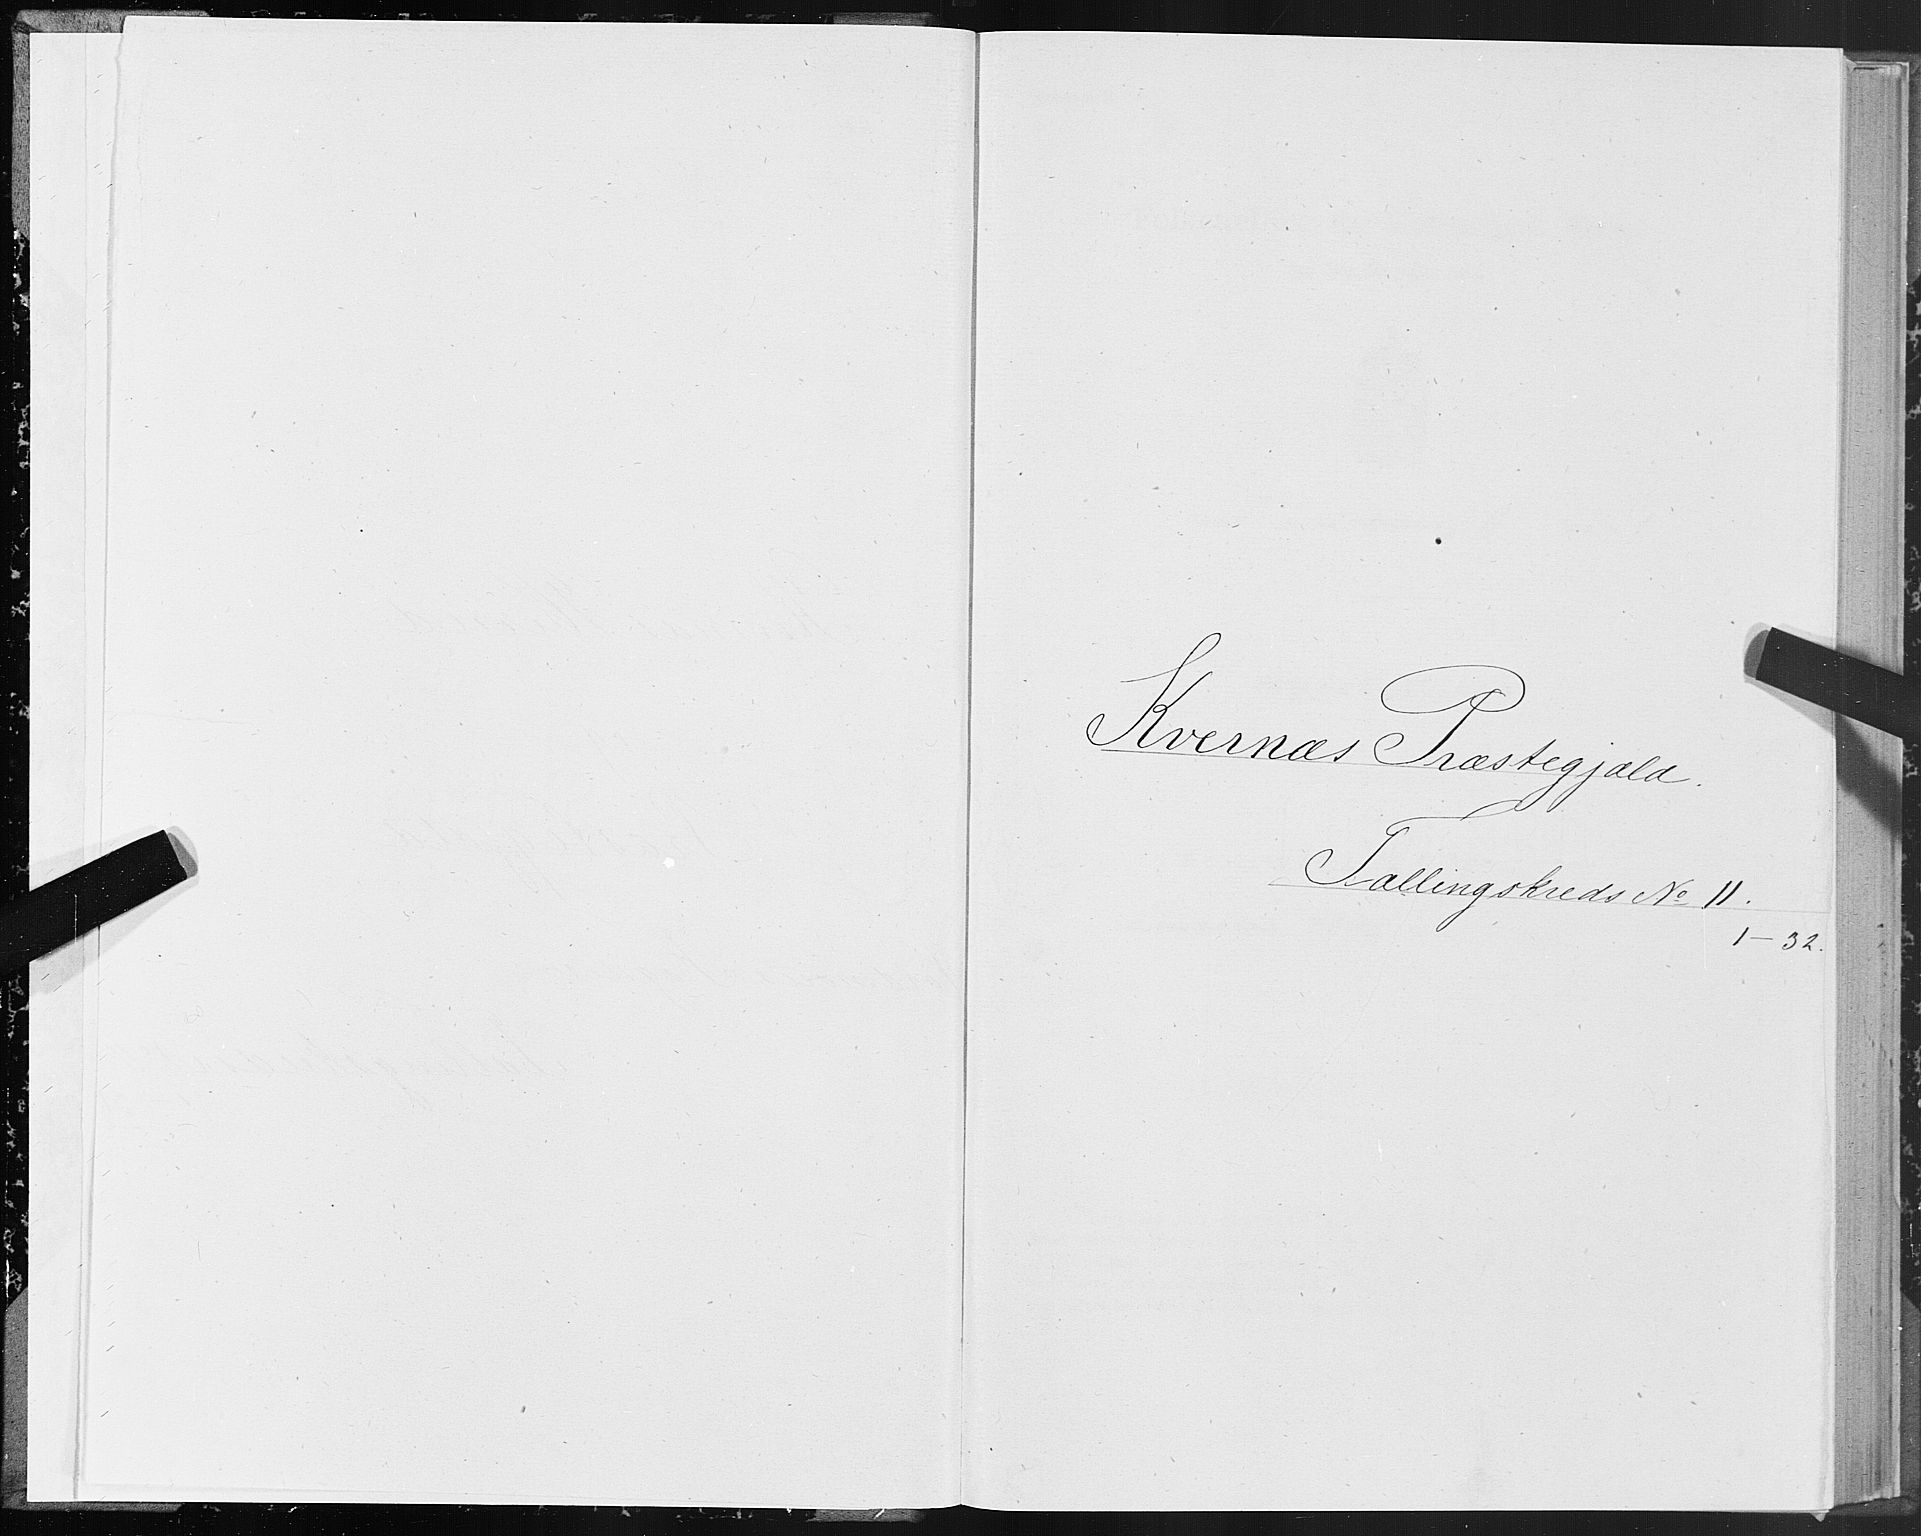 Kvernæs Præstegjæld.
Tællingskreds No 11.
1 — 32.